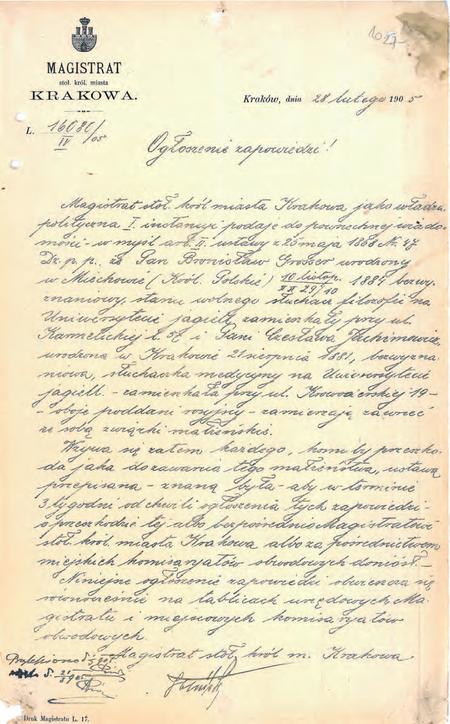 MAGISTRAT
stoł. król. miasta
KRAKOWA.
Kraków, dnia 28 lutego 1905
L. 16080/05
IV
Ogłoszenie zapowiedzi!
Magistrat stoł. król. miasta Krakowa jako władza
polityczna I. instancyi podaje do powszechnej wiado-
mości - w myśl art. II. ustawy z 25 maja 1868 Nr. 47
Dz. p. p. iż Pan Bronisław Grosser urodzony
w Miechowie (Król. Polskie) 10 listop. 1884 bezwy-
znaniowy, stanu wolnego słuchacz filozofii na
Uniwersytecie jagiell. zamieszkały przy ul.
Karmelickiej l. 57 i Pani Czesława Jachimowicz
urodzona w Krakowie 21 sierpnia 1881, bezwyzna-
niowa, słuchaczka medycyny na Uniwersytecie
jagiell. - zamieszkała przy ul. Krowoderskiej 19 -
- oboje poddani rosyjscy - zamierzają zawrzeć
ze sobą związki małżeńskie.
Wzywa się zatem każdego, komu by przeszko-
da jaka do zawarcia tego małżeństwa, ustawą
przepisana - znaną była - aby w terminie
3 tygodni od chwili ogłoszenia tych zapowiedzi -
o przeszkodzie tej albo bezpośrednio Magistratowi
stoł. król. miasta Krakowa albo za pośrednictwem
miejskich komisaryatów obwodowych doniósł. -
Niniejsze ogłoszenie zapowiedzi obwieszcza się
równocześnie na tablicach urzędowych Ma-
gistratu i miejscowych komisaryatów
obwodowych.
Magistrat stoł. król. m. Krakowa
Druk Magistratu L. 17.